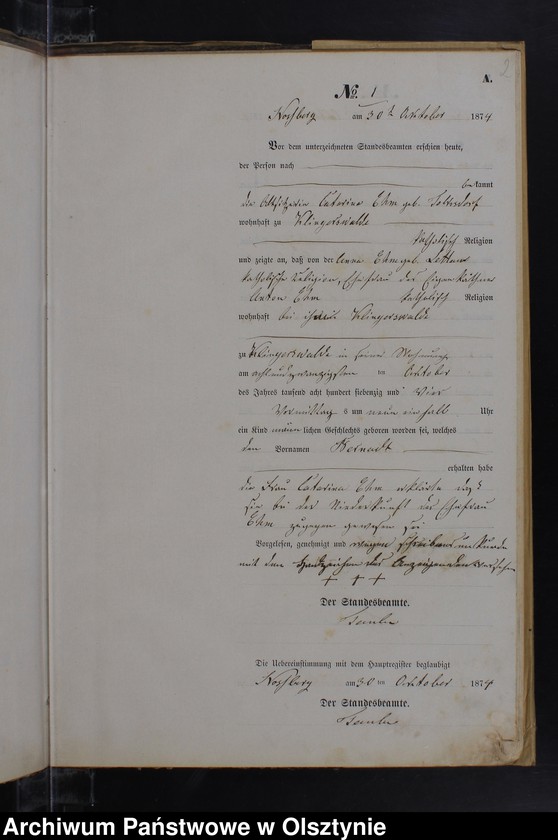 2
A.
No. 1
am 30t Oktober 1874
Vor dem unterzeichneten Standesbeamten erschien heute,
der Person nach
bekannt
die Altsitzerin Catarina Ehm geb.
wohnhaft zu Klingerswalde
katholisch Religion
und zeigte an, daß von der Anna Ehm geb.
katholische Religion, Ehefrau des Eigenkäthner
Anton Ehm katholisch Religion
wohnhaft bei ihr Klingerswalde
zu Klingerswalde in seiner Wohnung
am achtundzwanzigsten ten Oktober
des Jahres tausend acht hundert siebenzig und vier
Vormittag s um neun ein halb Uhr
ein Kind männlichen Geschlechts geboren worden sei, welches
den Vornamen Bernadt
erhalten habe
die Frau Catarina Ehm erklärte daß
sie bei der Niederkunft der Ehefrau
Ehm zugegen gewesen sei
Vorgelesen, genehmigt und wegen Schreibensunkunde
mit dem Handzeichen des Anzeigenden versehen
+ + +
Der Standesbeamte.
Die Uebereinstimmung mit dem Hauptregister beglaubigt
am 30 ten Oktober 1874
Der Standesbeamte.
Archiwum Państwowe w Olsztynie